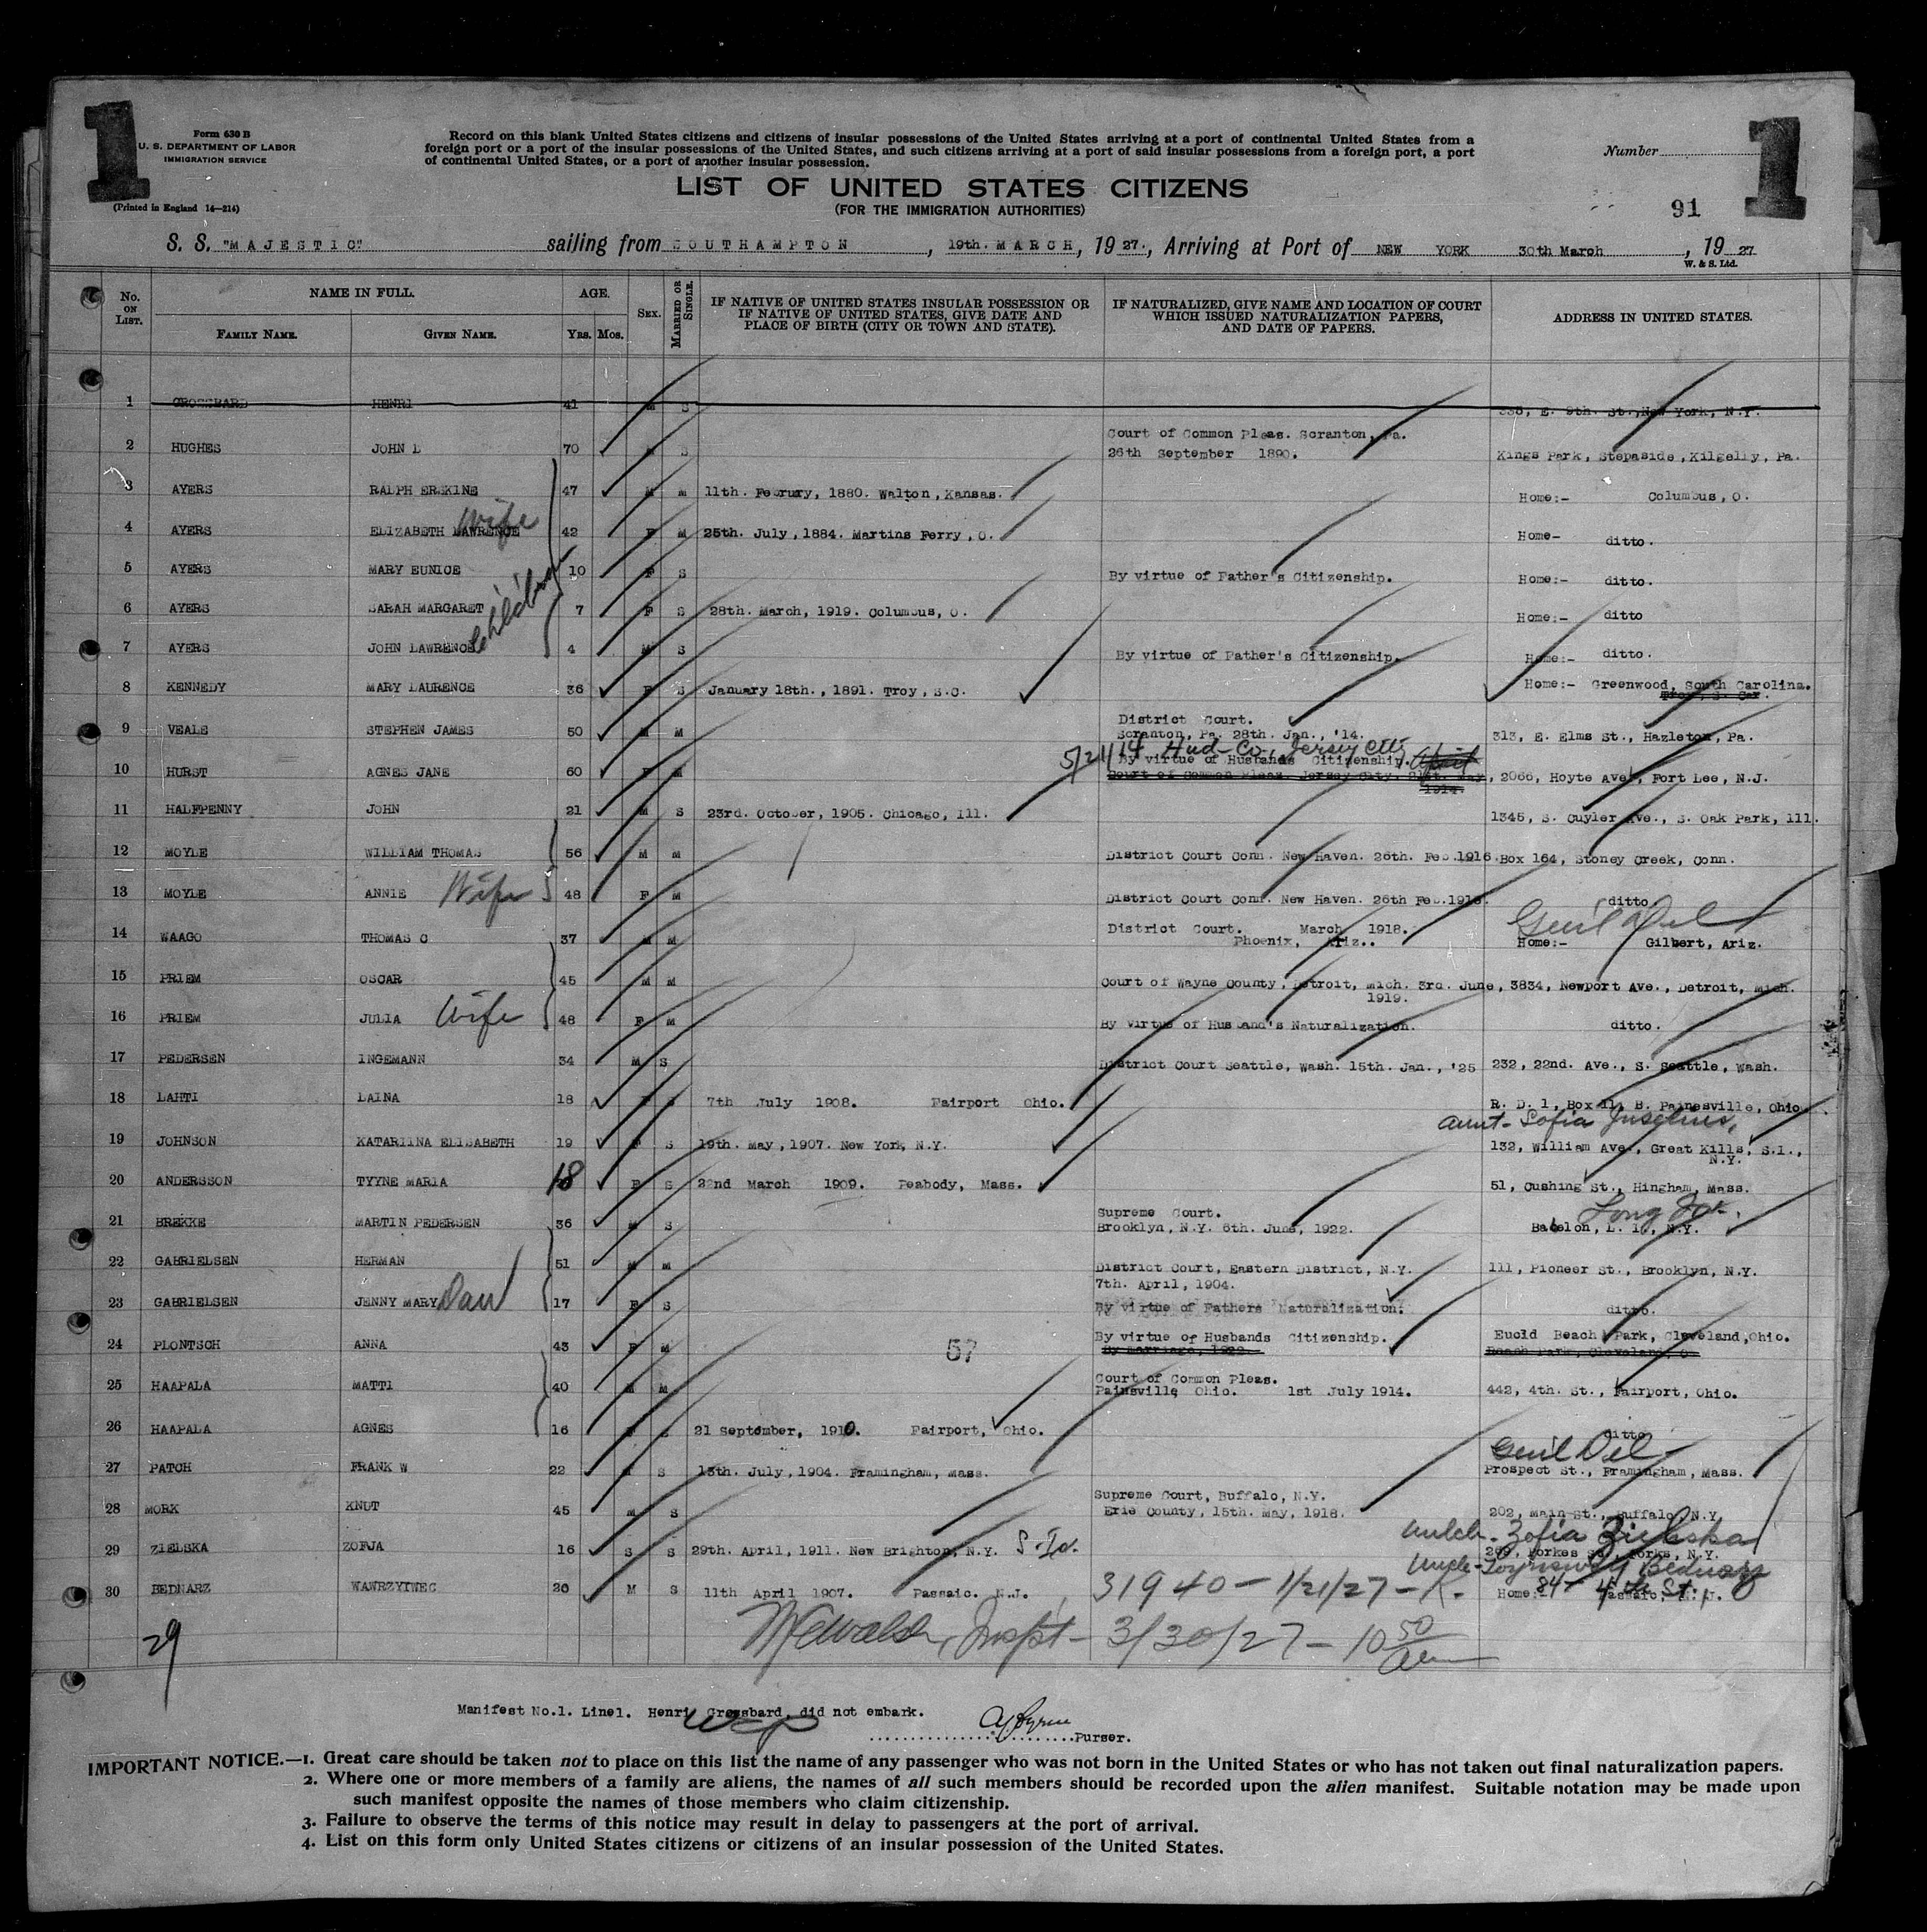 1
1
Form 630 B
U. S. DEPARTMENT OF LABOR
IMMIGRATION SERVICE
(Printed in England 14—214)
Record on this blank United States citizens and citizens of insular possessions of the United States arriving at a port of continental United States from a
foreign port or a port of the insular possessions of the United States, and such citizens arriving at a port of said insular possessions from a foreign port, a port
of continental United States, or a port of another insular possession.
Number
LIST OF UNITED STATES CITIZENS
(FOR THE IMMIGRATION AUTHORITIES)
91
S. S. "MAJESTIC" sailing from SOUTHAMPTON, 19th. MARCH, 19 27., Arriving at Port of NEW YORK 30th March, 19 27
W. & S. Ltd.
No. ON LIST. NAME IN FULL. FAMILY NAME. GIVEN NAME. AGE. Yrs. Mos. SEX. MARRIED OR SINGLE. IF NATIVE OF UNITED STATES INSULAR POSSESSION OR IF NATIVE OF UNITED STATES, GIVE DATE AND PLACE OF BIRTH (CITY OR TOWN AND STATE). IF NATURALIZED, GIVE NAME AND LOCATION OF COURT WHICH ISSUED NATURALIZATION PAPERS, AND DATE OF PAPERS. ADDRESS IN UNITED STATES.
1 GROSSBARD HENRI 41 M S 338, E. 9th. St., New York, N.Y.
2 HUGHES JOHN L 70 M S Court of Common Pleas. Scranton, Pa. 26th September 1890. Kings Park, Stepaside, Kilgelly, Pa.
3 AYERS RALPH ERSKINE 47 M M 11th. Februry, 1880. Walton, Kansas. Home:- Columbus, O.
4 AYERS ELIZABETH LAWRENCE Wife 42 F M 25th. July, 1884. Martins Ferry, O. Home- ditto.
5 AYERS MARY EUNICE 10 F S By virtue of Father's Citizenship. Home:- ditto.
6 AYERS SARAH MARGARET Children 7 F S 28th. March, 1919. Columbus, O. Home:- ditto
7 AYERS JOHN LAWRENCE 4 M S By virtue of Father's Citizenship. Home:- ditto.
8 KENNEDY MARY LAURENCE 36 F S January 18th., 1891. Troy, S.C. Home:- Greenwood, South Carolina.
9 VEALE STEPHEN JAMES 50 M M District Court. Scranton, Pa. 28th. Jan., '14. 313, E. Elms St., Hazleton, Pa.
5/21/14 Hud-Co. Jersey City
10 HURST AGNES JANE 60 F M By virtue of Husbands Citizenship. April Court of Common Pleas. Jersey City. 21st. May, 1914. 2066, Hoyte Ave., Fort Lee, N.J.
11 HALFPENNY JOHN 21 M S 23rd. October, 1905. Chicago, Ill. 1345, S. Cuyler Ave., S. Oak Park, Ill.
12 MOYLE WILLIAM THOMAS 56 M M District Court Conn. New Haven. 26th. Feb.1916. Box 164, Stoney Creek, Conn.
13 MOYLE ANNIE Wife 48 F M District Court Conn. New Haven. 26th Feb.1916. ditto
Genl Del
14 WAAGO THOMAS C 37 M M District Court. March 1918. Phoenix, Ariz.. Home:- Gilbert, Ariz.
15 PRIEM OSCAR 45 M M Court of Wayne County, Detroit, Mich. 3rd. June, 1919. 3834, Newport Ave., Detroit, Mich.
16 PRIEM JULIA Wife 48 F M By Virtue of Husband's Naturalization. ditto.
17 PEDERSEN INGEMANN 34 M S District Court Seattle, Wash. 15th. Jan., '25 232, 22nd. Ave., S. Seattle, Wash.
18 LAHTI LAINA 18 F S 7th July 1908. Fairport Ohio. R. D. 1, Box 11, B. Painesville, Ohio
Aunt- Sofia
19 JOHNSON KATARIINA ELISABETH 19 F S 19th. May, 1907. New York, N.Y. 132, William Ave., Great Kills, S.I., N.Y.
20 ANDERSSON TYYNE MARIA 18 F S 22nd March 1909. Peabody, Mass. 51, Cushing St., Hingham, Mass.
21 BREKKE MARTIN PEDERSEN 36 M S Supreme Court. Brooklyn, N.Y. 6th. June, 1922. Long Isl. Babelon, L. I., N.Y.
22 GABRIELSEN HERMAN 51 M M District Court, Eastern District, N.Y. 7th. April, 1904. 111, Pioneer St., Brooklyn, N.Y.
23 GABRIELSEN JENNY MARY Dau 17 F S By virtue of Fathers Naturalization. ditto.
24 PLONTSCH ANNA 43 F M 57 By virtue of Husbands Citizenship. By marriage, 1922. Eucld Beach Park, Cleveland, Ohio. Beach Park, Cleveland, O
25 HAAPALA MATTI 40 M M Court of Common Pleas. Painsville Ohio. 1st July 1914. 442, 4th. St., Fairport, Ohio.
26 HAAPALA AGNES 16 F S 21 September, 1910. Fairport, Ohio. ditto
Genl Del
27 PATCH FRANK W 22 M S 13th. July, 1904. Framingham, Mass. Prospect St., Framingham, Mass.
28 MORK KNUT 45 M S Supreme Court, Buffalo, N.Y. Erie County, 15th. May, 1918. 202, Main St., Buffalo, N.Y.
Zofia Zielska
29 ZIELSKA ZOFJA 16 S S 29th. April, 1911. New Brighton, N.Y. S. Id. 269, Forkes St., Forks, N.Y.
Uncle- Bednarz
30 BEDNARZ WAWRZYNEC 20 M S 11th April 1907. Passaic. N.J. 31940 - 1/21/27 - K. Home:- 84 - 4th St. Passaic, N.J.
29
Inspt - 3/30/27 - 10 50 am
Manifest No.1. Line1. Henri Grossbard. did not embark.
Purser.
IMPORTANT NOTICE.—1. Great care should be taken not to place on this list the name of any passenger who was not born in the United States or who has not taken out final naturalization papers.
2. Where one or more members of a family are aliens, the names of all such members should be recorded upon the alien manifest. Suitable notation may be made upon
such manifest opposite the names of those members who claim citizenship.
3. Failure to observe the terms of this notice may result in delay to passengers at the port of arrival.
4. List on this form only United States citizens or citizens of an insular possession of the United States.